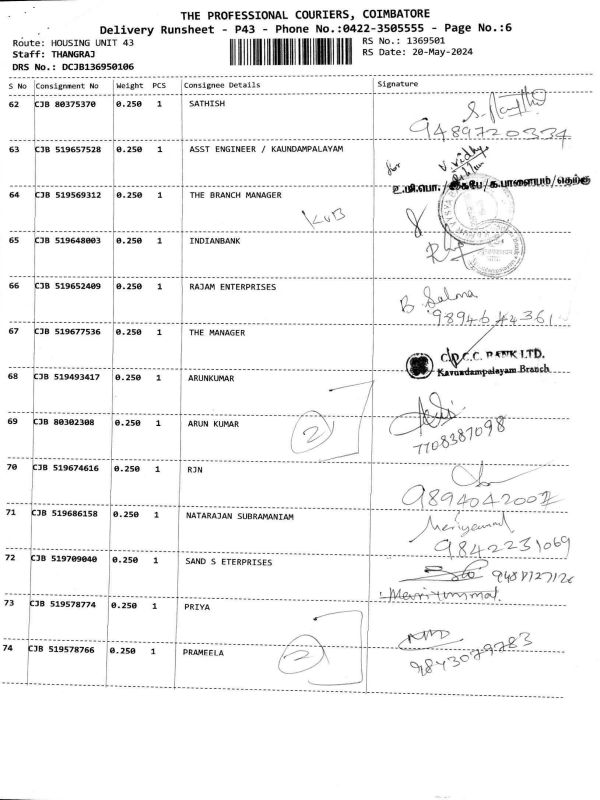 THE PROFESSIONAL COURIERS, COIMBATORE
Delivery Runsheet - P43 - Phone No.:0422-3505555 - Page No.:6
Route: HOUSING UNIT 43
RS No.: 1369501
Staff: THANGRAJ
RS Date: 20-May-2024
DRS No.: DCJB136950106
S No Consignment No Weight PCS Consignee Details Signature
62 CJB 80375370 0.250 1 SATHISH
9489720334
63 CJB 519657528 0.250 1 ASST ENGINEER / KAUNDAMPALAYAM
for
64 CJB 519569312 0.250 1 THE BRANCH MANAGER
KVB
65 CJB 519648003 0.250 1 INDIANBANK
66 CJB 519652409 0.250 1 RAJAM ENTERPRISES
B. Salma
67 CJB 519677536 0.250 1 THE MANAGER
BANK LTD.
Kavundampalayam Branch
68 CJB 519493417 0.250 1 ARUNKUMAR
69 CJB 80302308 0.250 1 ARUN KUMAR
2
7708387098
70 CJB 519674616 0.250 1 RJN
71 CJB 519686158 0.250 1 NATARAJAN SUBRAMANIAM
9842231069
72 CJB 519709040 0.250 1 SAND S ETERPRISES
73 CJB 519578774 0.250 1 PRIYA
74 CJB 519578766 0.250 1 PRAMEELA
2
9843079783